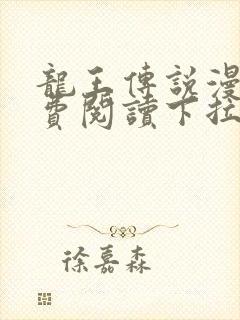 龍王傳說漫
費閱讀下拉
徐嘉森